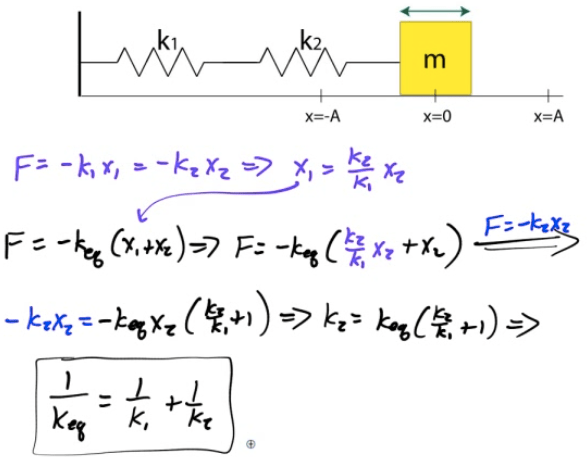 k₁ k₂ m
x=-A x=0 x=A
F = -k₁x₁ = -k₂x₂ => x₁ = k₂/k₁ x₂
F = -k_eq (x₁+x₂) => F = -k_eq (k₂/k₁ x₂ + x₂) F=-k₂x₂
-k₂x₂ = -k_eq x₂ (k₂/k₁ + 1) => k₂ = k_eq (k₂/k₁ + 1) =>
1/k_eq = 1/k₁ + 1/k₂